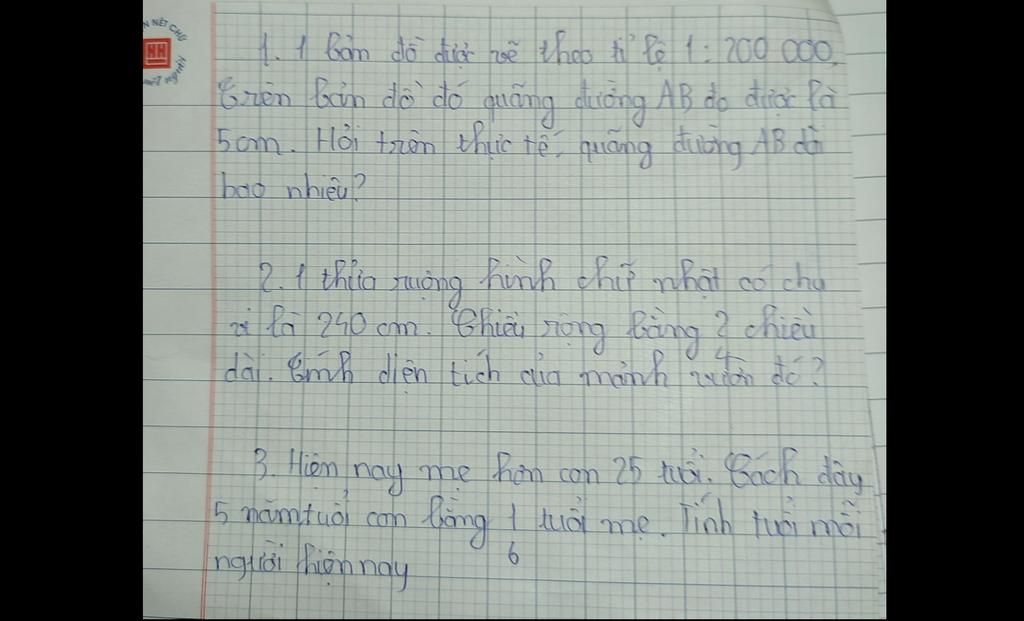 N NÉT CHỮ
HH
1. 1 bản đồ được vẽ theo tỉ lệ 1: 200 000.
Trên bản đồ đó quãng đường AB đo được là
5cm. Hỏi trên thực tế, quãng đường AB dài
bao nhiêu?
2. 1 thửa ruộng hình chữ nhật có chu
vi là 240 cm. Chiều rộng bằng 2/4 chiều
dài. Tính diện tích của mảnh vườn đó?
3. Hiện nay mẹ hơn con 25 tuổi. Cách đây
5 năm tuổi con bằng 1/6 tuổi mẹ. Tính tuổi mỗi
người hiện nay